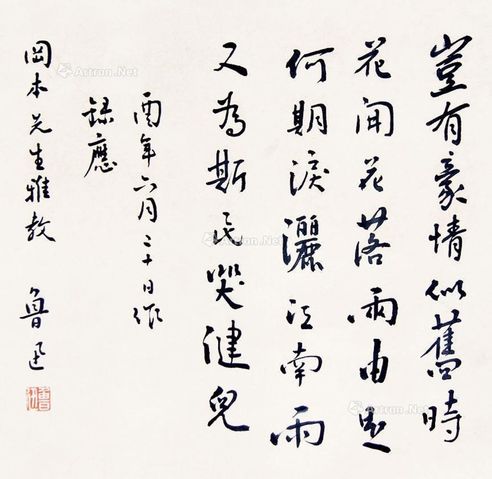 豈有豪情似舊時
花開花落兩由之
何期淚灑江南雨
又為斯民哭健兒
酉年六月二十日作
錄應
岡本先生雅教 魯迅
魯迅
Artron.Net
Artron.Net
Artron.Net
Artron.Net